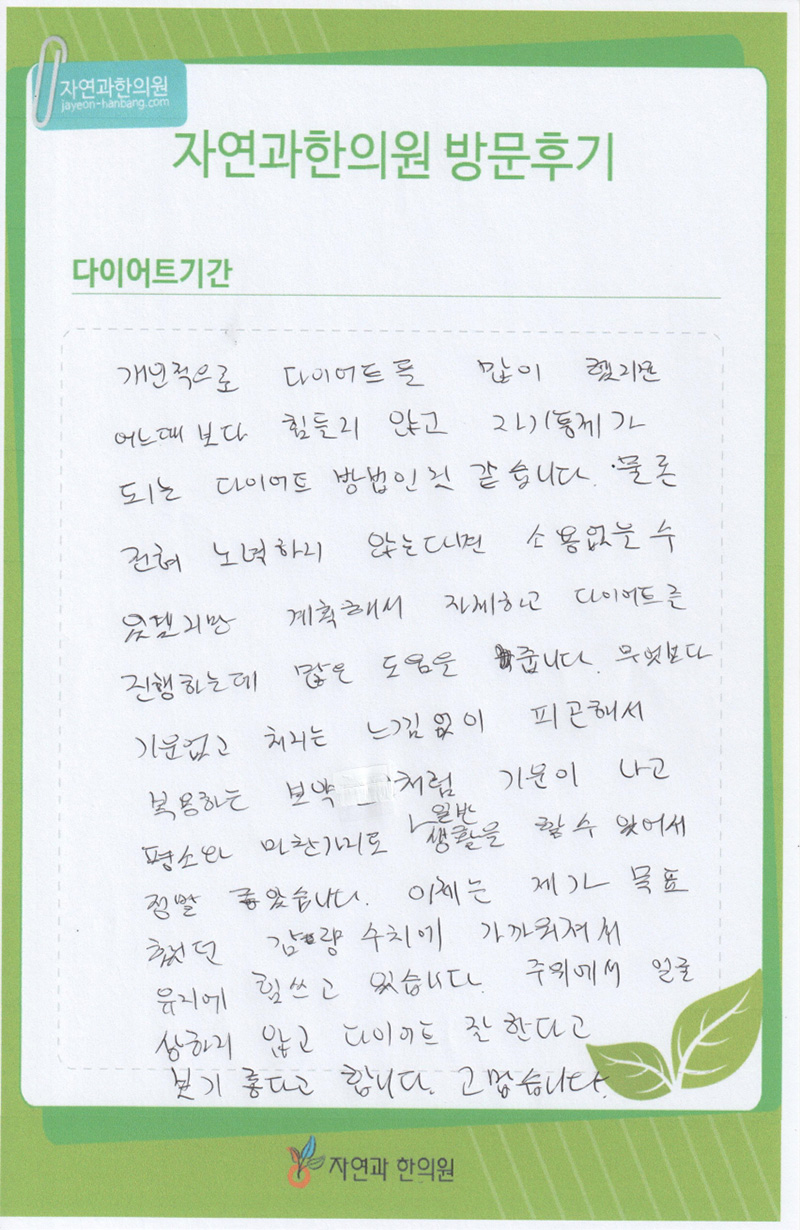 자연과한의원
jayeon-hanbang.com
자연과한의원 방문후기
다이어트기간
개인적으로 다이어트를 많이 했지만
어느때보다 힘들지 않고 자기통제가
되는 다이어트 방법인것 같습니다. 물론
전혀 노력하지 않는다면 소용없을 수
있겠지만 계획해서 자제하고 다이어트를
진행하는데 많은 도움을 줍니다. 무엇보다
기운없고 처지는 느낌없이 피곤해서
복용하는 보약처럼 기운이 나고
평소와 마찬가지로 일반
생활을 할 수 있어서
정말 좋았습니다. 이제는 제가 목표
했던 감량 수치에 가까워져서
유지에 힘쓰고 있습니다. 주위에서 얼굴
상하지 않고 다이어트 잘 한다고
보기 좋다고 합니다. 고맙습니다.
자연과 한의원